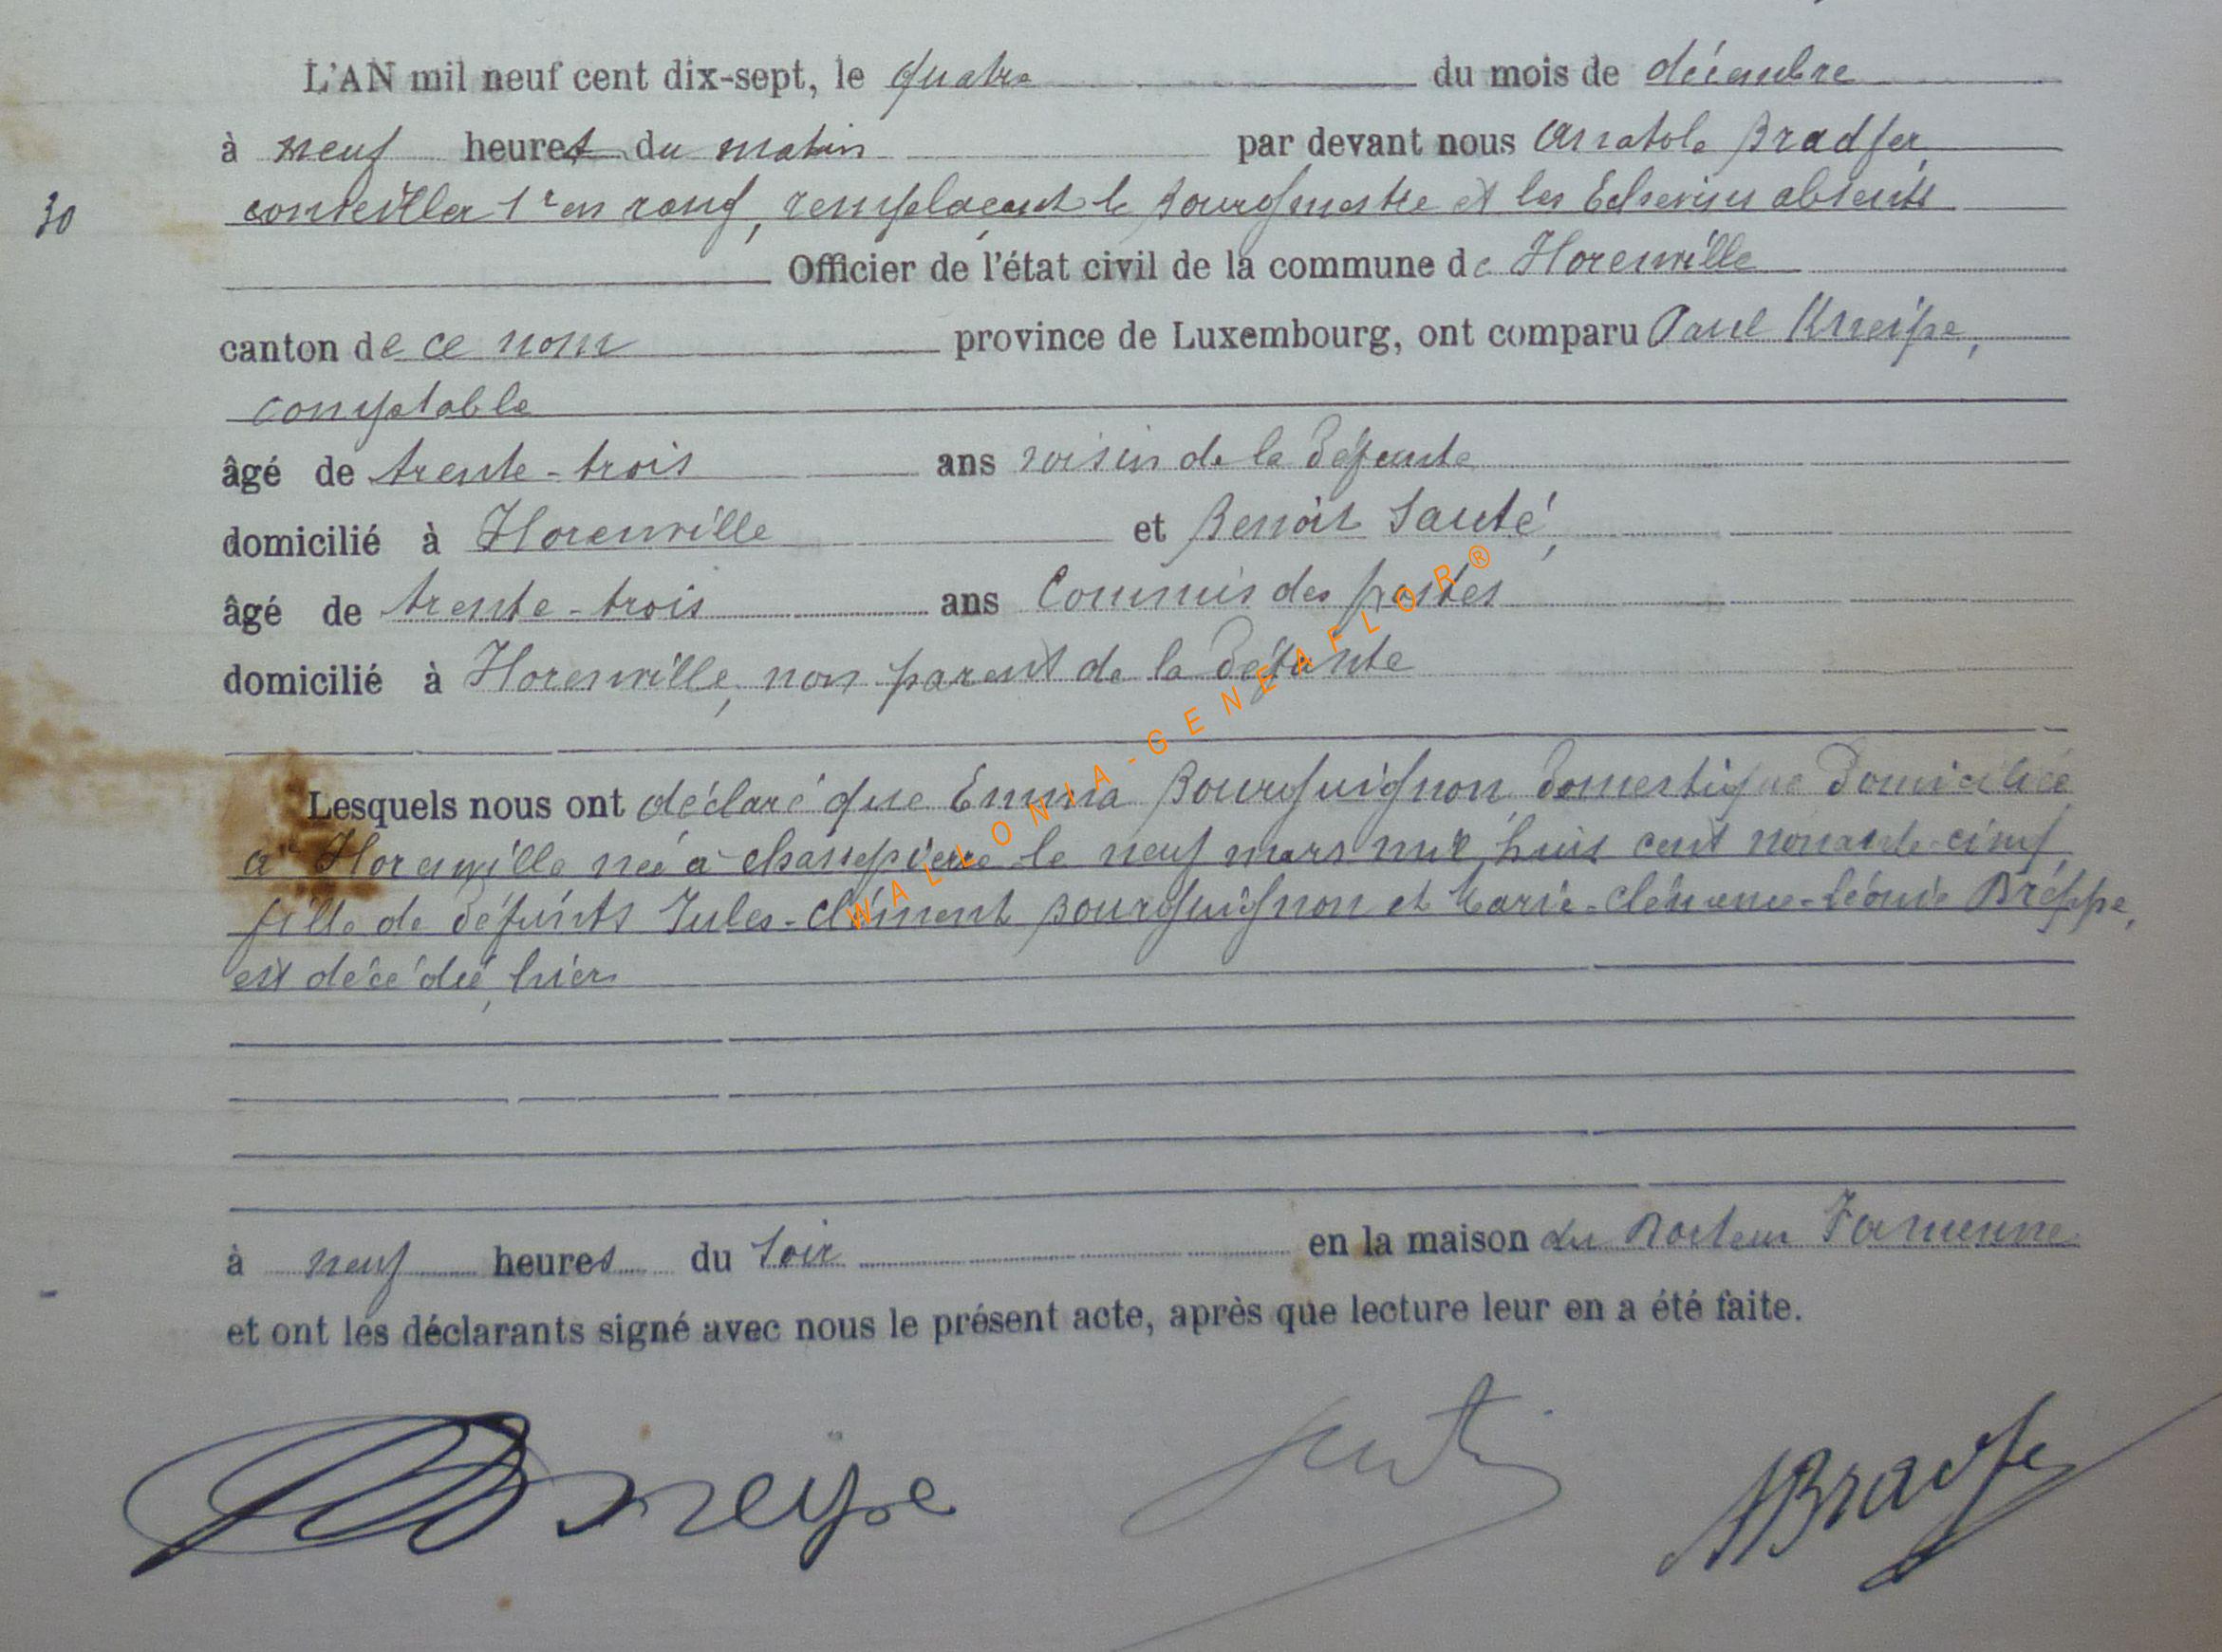 L'AN mil neuf cent dix-sept, le quatre du mois de décembre
à neuf heures du matin par devant nous Anatole Bradfer,
30
conseiller 1r en rang, remplaçant le Bourgmestre et les Echevins absents
Officier de l'état civil de la commune de Florenville
canton de ce nom province de Luxembourg, ont comparu Paul Kneipe,
comptable
âgé de trente-trois ans voisin de la défunte
domicilié à Florenville et Benoît Sauté,
âgé de trente-trois ans Commis des postes
domicilié à Florenville, non parent de la défunte
WALLONIA-GENEAFLOR®
Lesquels nous ont déclaré que Emma Bourguignon, domestique domiciliée
à Florenville née à chassepierre le neuf mars mil huit cent nonante-cinq
fille de défunts Jules-Clément Bourguignon et Marie-Clémence-Léonie
est décédée, hier
à neuf heures du soir en la maison du Docteur Famenne
et ont les déclarants signé avec nous le présent acte, après que lecture leur en a été faite.
Kneipe
ABradfer